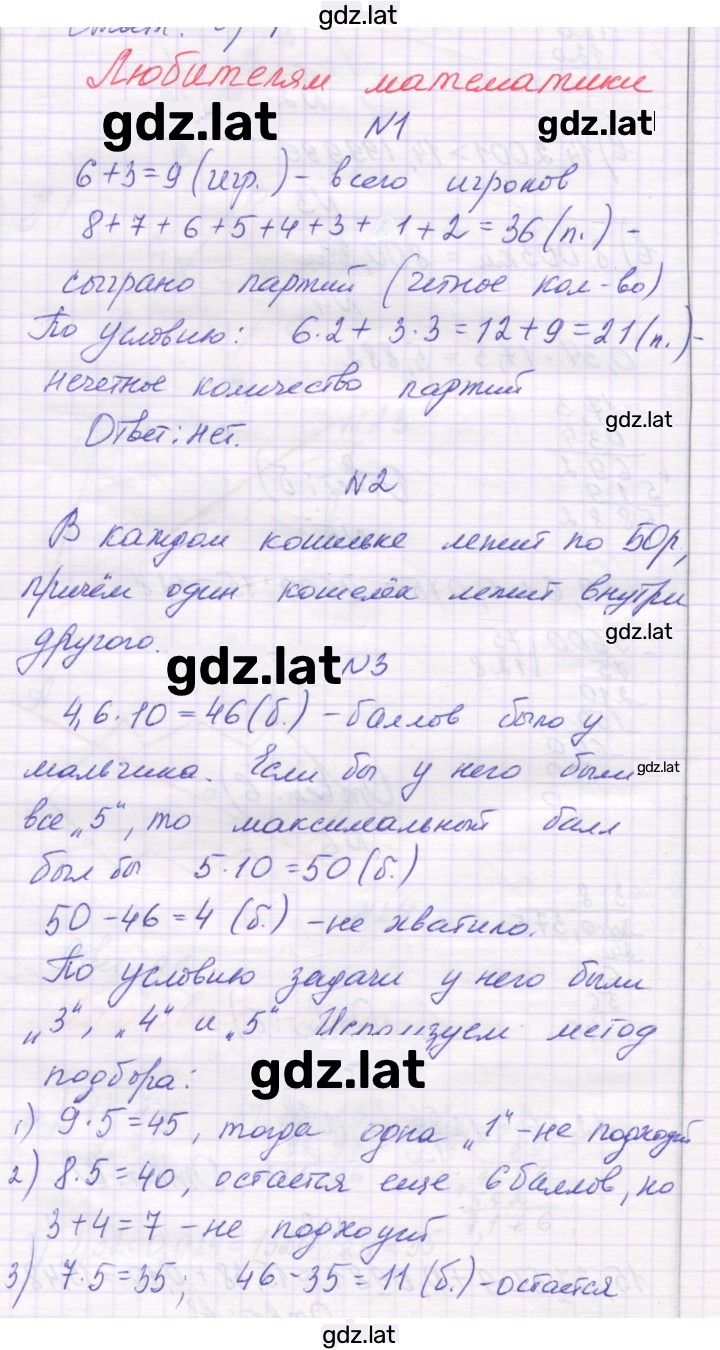 gdz.lat
Любителям математики
gdz.lat N1 gdz.lat
6+3=9 (игр.) - всего игроков
8+7+6+5+4+3+ 1+2=36 (п.) -
сыграно партий (четное кол-во)
По условию: 6·2+ 3·3=12+9=21(п.)-
нечетное количество партий
gdz.lat
Ответ: нет.
N2
В каждом кошельке лежит по 50р,
причём один кошелёк лежит внутри
gdz.lat
другого.
gdz.lat N3
4,6·10=46(б.) - баллов было у
мальчика. Если бы у него были gdz.lat
все „5“, то максимальный балл
был бы 5·10=50(б.)
50-46=4 (б.) -не хватило.
По условию задачи у него были
„3“, „4“ и „5“ Используем метод
подбора: gdz.lat
1) 9·5=45, тогда одна „1“-не подходит
2) 8·5=40, остается еще 6 баллов, но
3+4=7 -не подходит
3) 7·5=35; 46-35=11(б.)-остается
gdz.lat